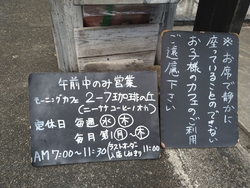 午前中のみ営業
モーニングカフェ 2-7珈琲の丘
(ニーナナコーヒーノオカ)
定休日 毎週 水 木
毎月 第1月〜木
AM7:00〜11:30 ラストオーダー 11:00
入店しめきり
※お席で静かに
座っていることのできない
お子様のカフェのご利用
ご遠慮下さい